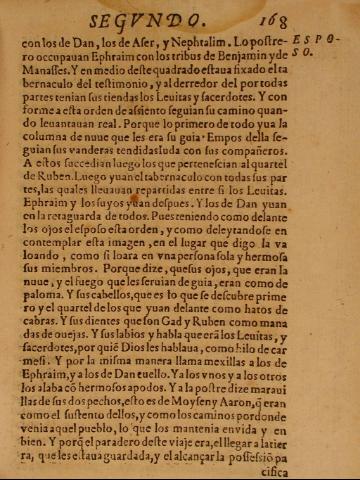 SEGVNDO. 168
ESPO-
SO.
con los de Dan, los de Aser, y Nephtalim. Lo postre-
ro occupauan Ephraim con los tribus de Benjamin y de
Manasses. Y en medio deste quadrado estaua fixado el ta
bernaculo del testimonio, y al derredor del por todas
partes tenian sus tiendas los Leuitas y sacerdotes. Y con
forme a esta orden de assiento seguian su camino quan
do leuantauan real. Porque lo primero de todo yua la
columna de nuue que les era su guia. Empos della se-
guian sus vanderas tendidas Iuda con sus compañeros.
A estos succedian luego los que pertenescian al quartel
de Ruben. Luego yua el tabernaculo con todas sus par
tes, las quales lleuauan repartidas entre si los Leuitas.
Ephraim y los suyos yuan despues. Y los de Dan yuan
en la retaguarda de todos. Pues teniendo como delante
los ojos el esposo esta orden, y como deleytandose en
contemplar esta imagen, en el lugar que digo la va
loando, como si loara en vna persona sola y hermosa
sus miembros. Porque dize, que sus ojos, que eran la
nuue, y el fuego que les seruian de guia, eran como de
paloma. Y sus cabellos, que es lo que se descubre prime
ro y el quartel de los que yuan delante como hatos de
cabras. Y sus dientes que son Gad y Ruben como mana
das de ouejas. Y sus labios y habla que erã los Leuitas, y
sacerdotes, por quiẽ Dios les hablaua, como hilo de car
mesi. Y por la misma manera llama mexillas a los de
Ephraim, y a los de Dan cuello. Y a los vnos y a los otros
los alaba cõ hermosos apodos. Y a la postre dize maraui
llas de sus dos pechos, esto es de Moysen y Aaron, q̃ eran
como el sustento dellos, y como los caminos por donde
venia aquel pueblo, lo que los mantenia en vida y en
bien. Y porq̃ el paradero deste viaje era, el llegar a la tier
ra, que les estaua guardada, y el alcançar la possessiõ pa
cifica